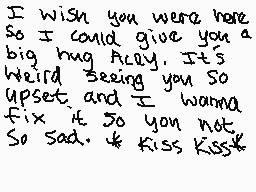 I wish you were here
so I could give you a
big hug Acey. It's
weird seeing you so
upset and I wanna
fix it so you not
so sad. * Kiss Kiss*